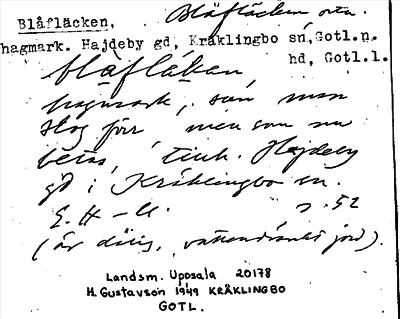 Blåfläcken,
Blåfläcken
hagmark. Hajdeby gd, Kräklingbo sn, Gotl.n.
hd, Gotl.l.
blåfläkan
hagmark, som man
slog förr men som nu
betas, tillh. Hajdeby
gd i Kräklingbo sn.
s. 52
(är dålig, jord).
Landsm. Uppsala 20178
H. Gustavson 1949 KRÄKLINGBO
GOTL.